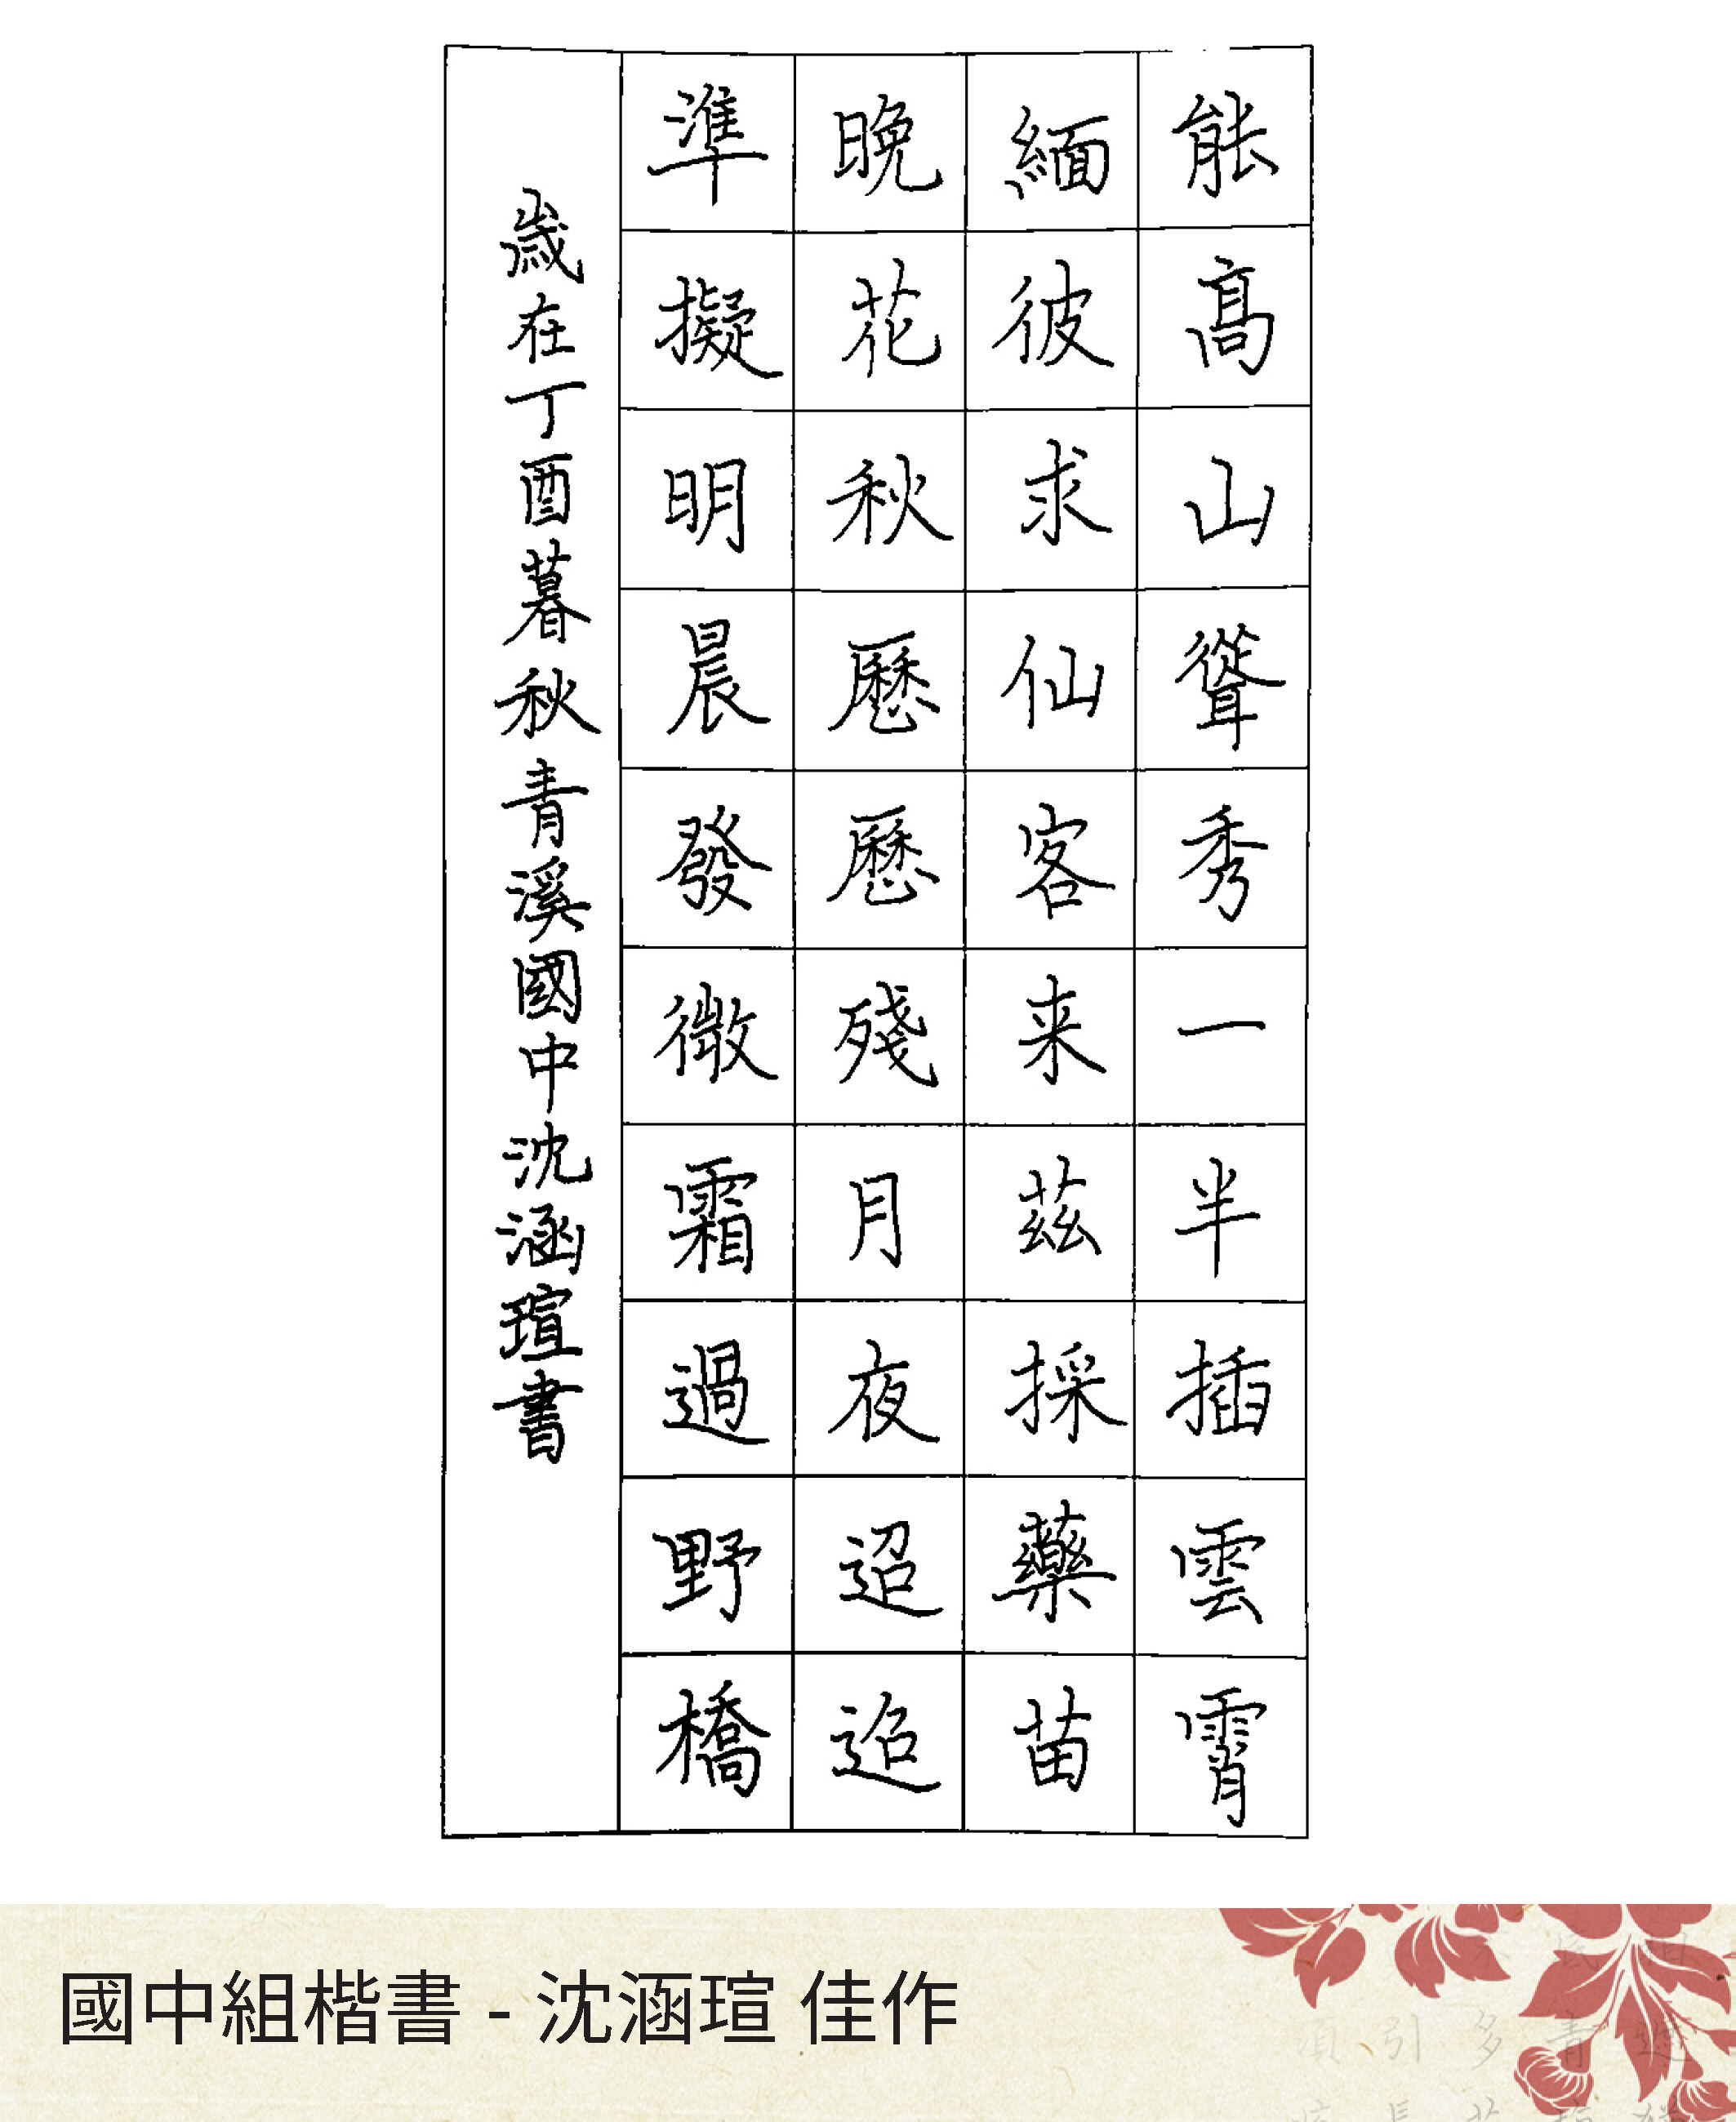 能高山聳秀一半插雲霄
緬彼求仙客来茲採藥苗
晚花秋歷歷殘月夜迢迢
準擬明晨發微霜過野橋
歲在丁酉暮秋青溪國中沈涵瑄書
國中組楷書 - 沈涵瑄 佳作